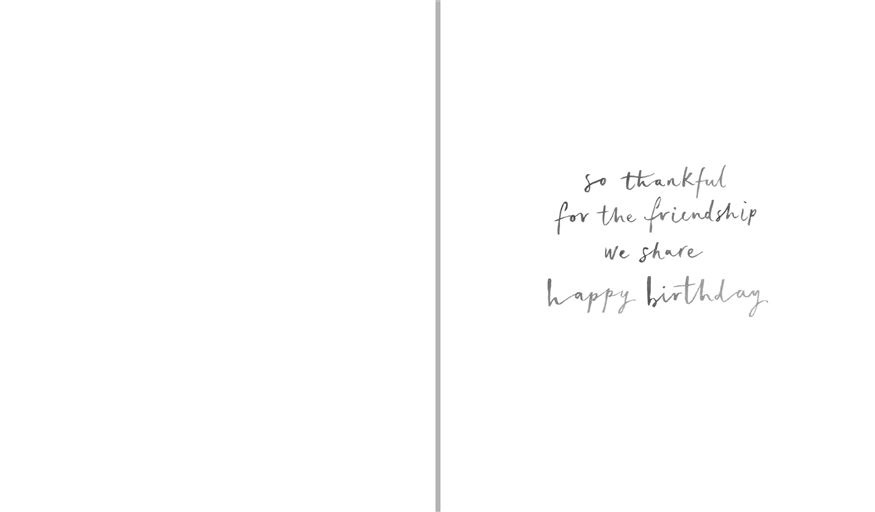 so thankful
for the friendship
we share
happy birthday